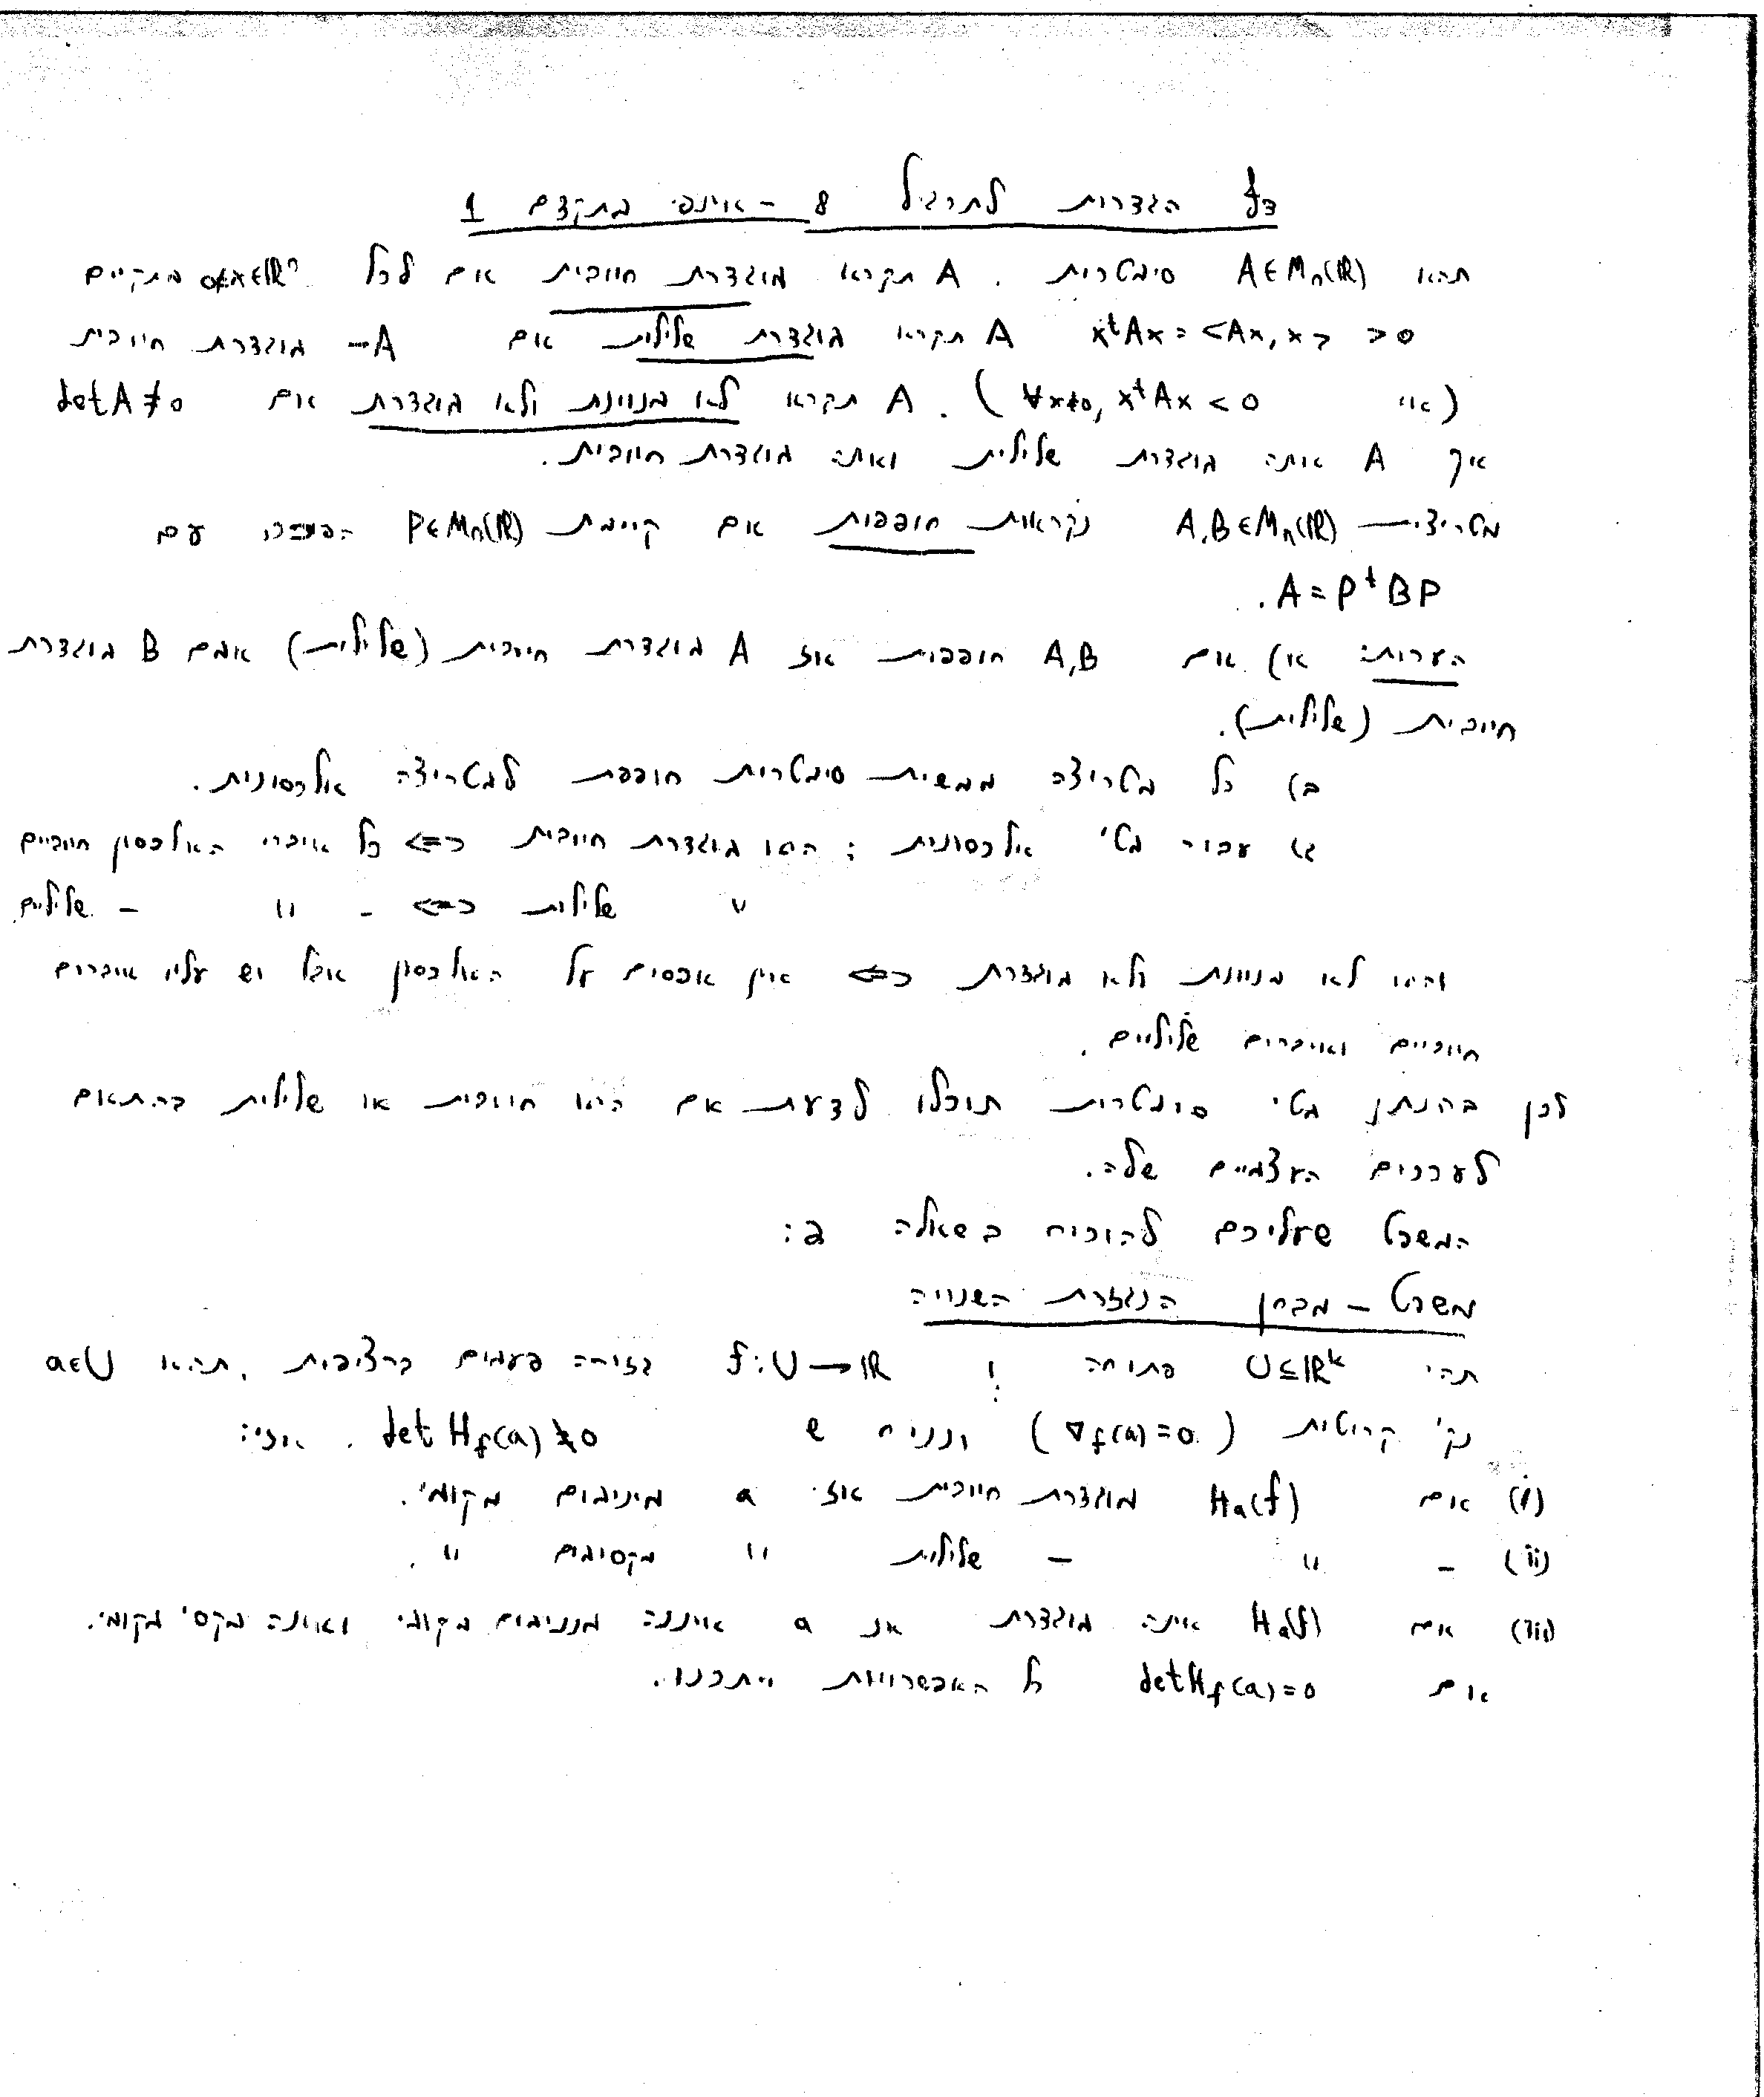 דף הגדרות לתרגיל 8 - אינפי מתקדם 1
תהא A∈Mn(ℝ) סימטרית. A תקרא מוגדרת חיובית אם לכל 0≠x∈ℝⁿ מתקיים
xᵗAx = <Ax,x> >0 A תקרא מוגדרת שלילית אם -A מוגדרת חיובית
(אזי ∀x≠0, xᵗAx<0). A תקרא לא מנוונת ולא מוגדרת אם detA≠0
אך A אינה מוגדרת שלילית ואינה מוגדרת חיובית.
מטריצות A,B∈Mn(ℝ) נקראות חופפות אם קיימת P∈Mn(ℝ) הפיכה עם
A=PᵗBP.
הערות: א) אם A,B חופפות אז A מוגדרת חיובית (שלילית) אמם B מוגדרת
חיובית (שלילית).
ב) כל מטריצה ממשית סימטרית חופפת למטריצה אלכסונית.
ג) עבור מט' אלכסונית: היא מוגדרת חיובית <=> כל איברי האלכסון חיוביים
" שלילית <=> - " - שליליים
והיא לא מנוונת ולא מוגדרת <=> אין אפסים על האלכסון אבל יש עליו איברים
חיוביים ואיברים שליליים.
לכן בהנתן מט' סימטרית תוכלו לדעת אם היא חיובית או שלילית בהתאם
לערכים העצמיים שלה.
המשפט שעליכם להוכיח בשאלה 2:
משפט - מבחן הנגזרת השנייה
תהי U⊆ℝᵏ פתוחה ו: f:U→ℝ גזירה פעמים ברציפות. תהא a∈U
נק' קריטית (∇f(a)=0) ונניח ש detHf(a)≠0. אזי:
(i) אם Ha(f) מוגדרת חיובית אז a מינימום מקומי.
(ii) - " - שלילית " מקסימום ".
(iii) אם Ha(f) אינה מוגדרת אז a איננה מינימום מקומי ואינה מקסי' מקומי.
אם detHf(a)=0 כל האפשרויות ייתכנו.